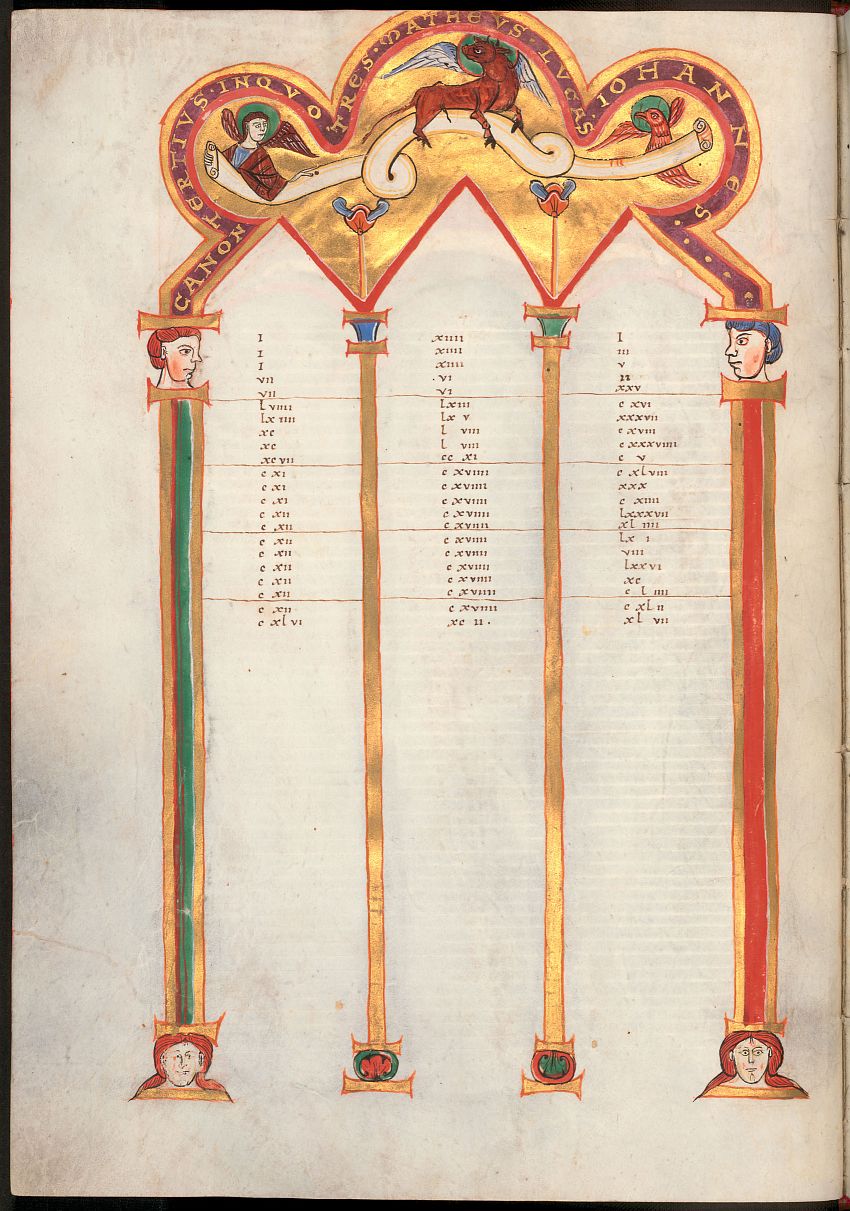 CANON TERTIVS · INQVO TRES · MATHEVS · LVCAS · IOHANNES
I xiiii I
I xiiii iii
I xiiii v
vii · vi ii
vii vi xxv
lviiii lxiii c xvi
lx iiii lx v xxxvii
xc l viii c xviii
xc l viii c xxxviiii
xcvii cc xi c v
c xi c xviiii c xlviii
c xi c xviiii xxx
c xi c xviiii c xiiii
c xii c xviiii lxxxvii
c xii c xviiii xl iiii
c xii c xviiii lx i
c xii c xviiii viii
c xii c xviiii lxxvi
c xii c xviiii xc
c xii c xviiii c l iiii
c xii c xviiii c xl ii
c xlvi xc ii · xl vii